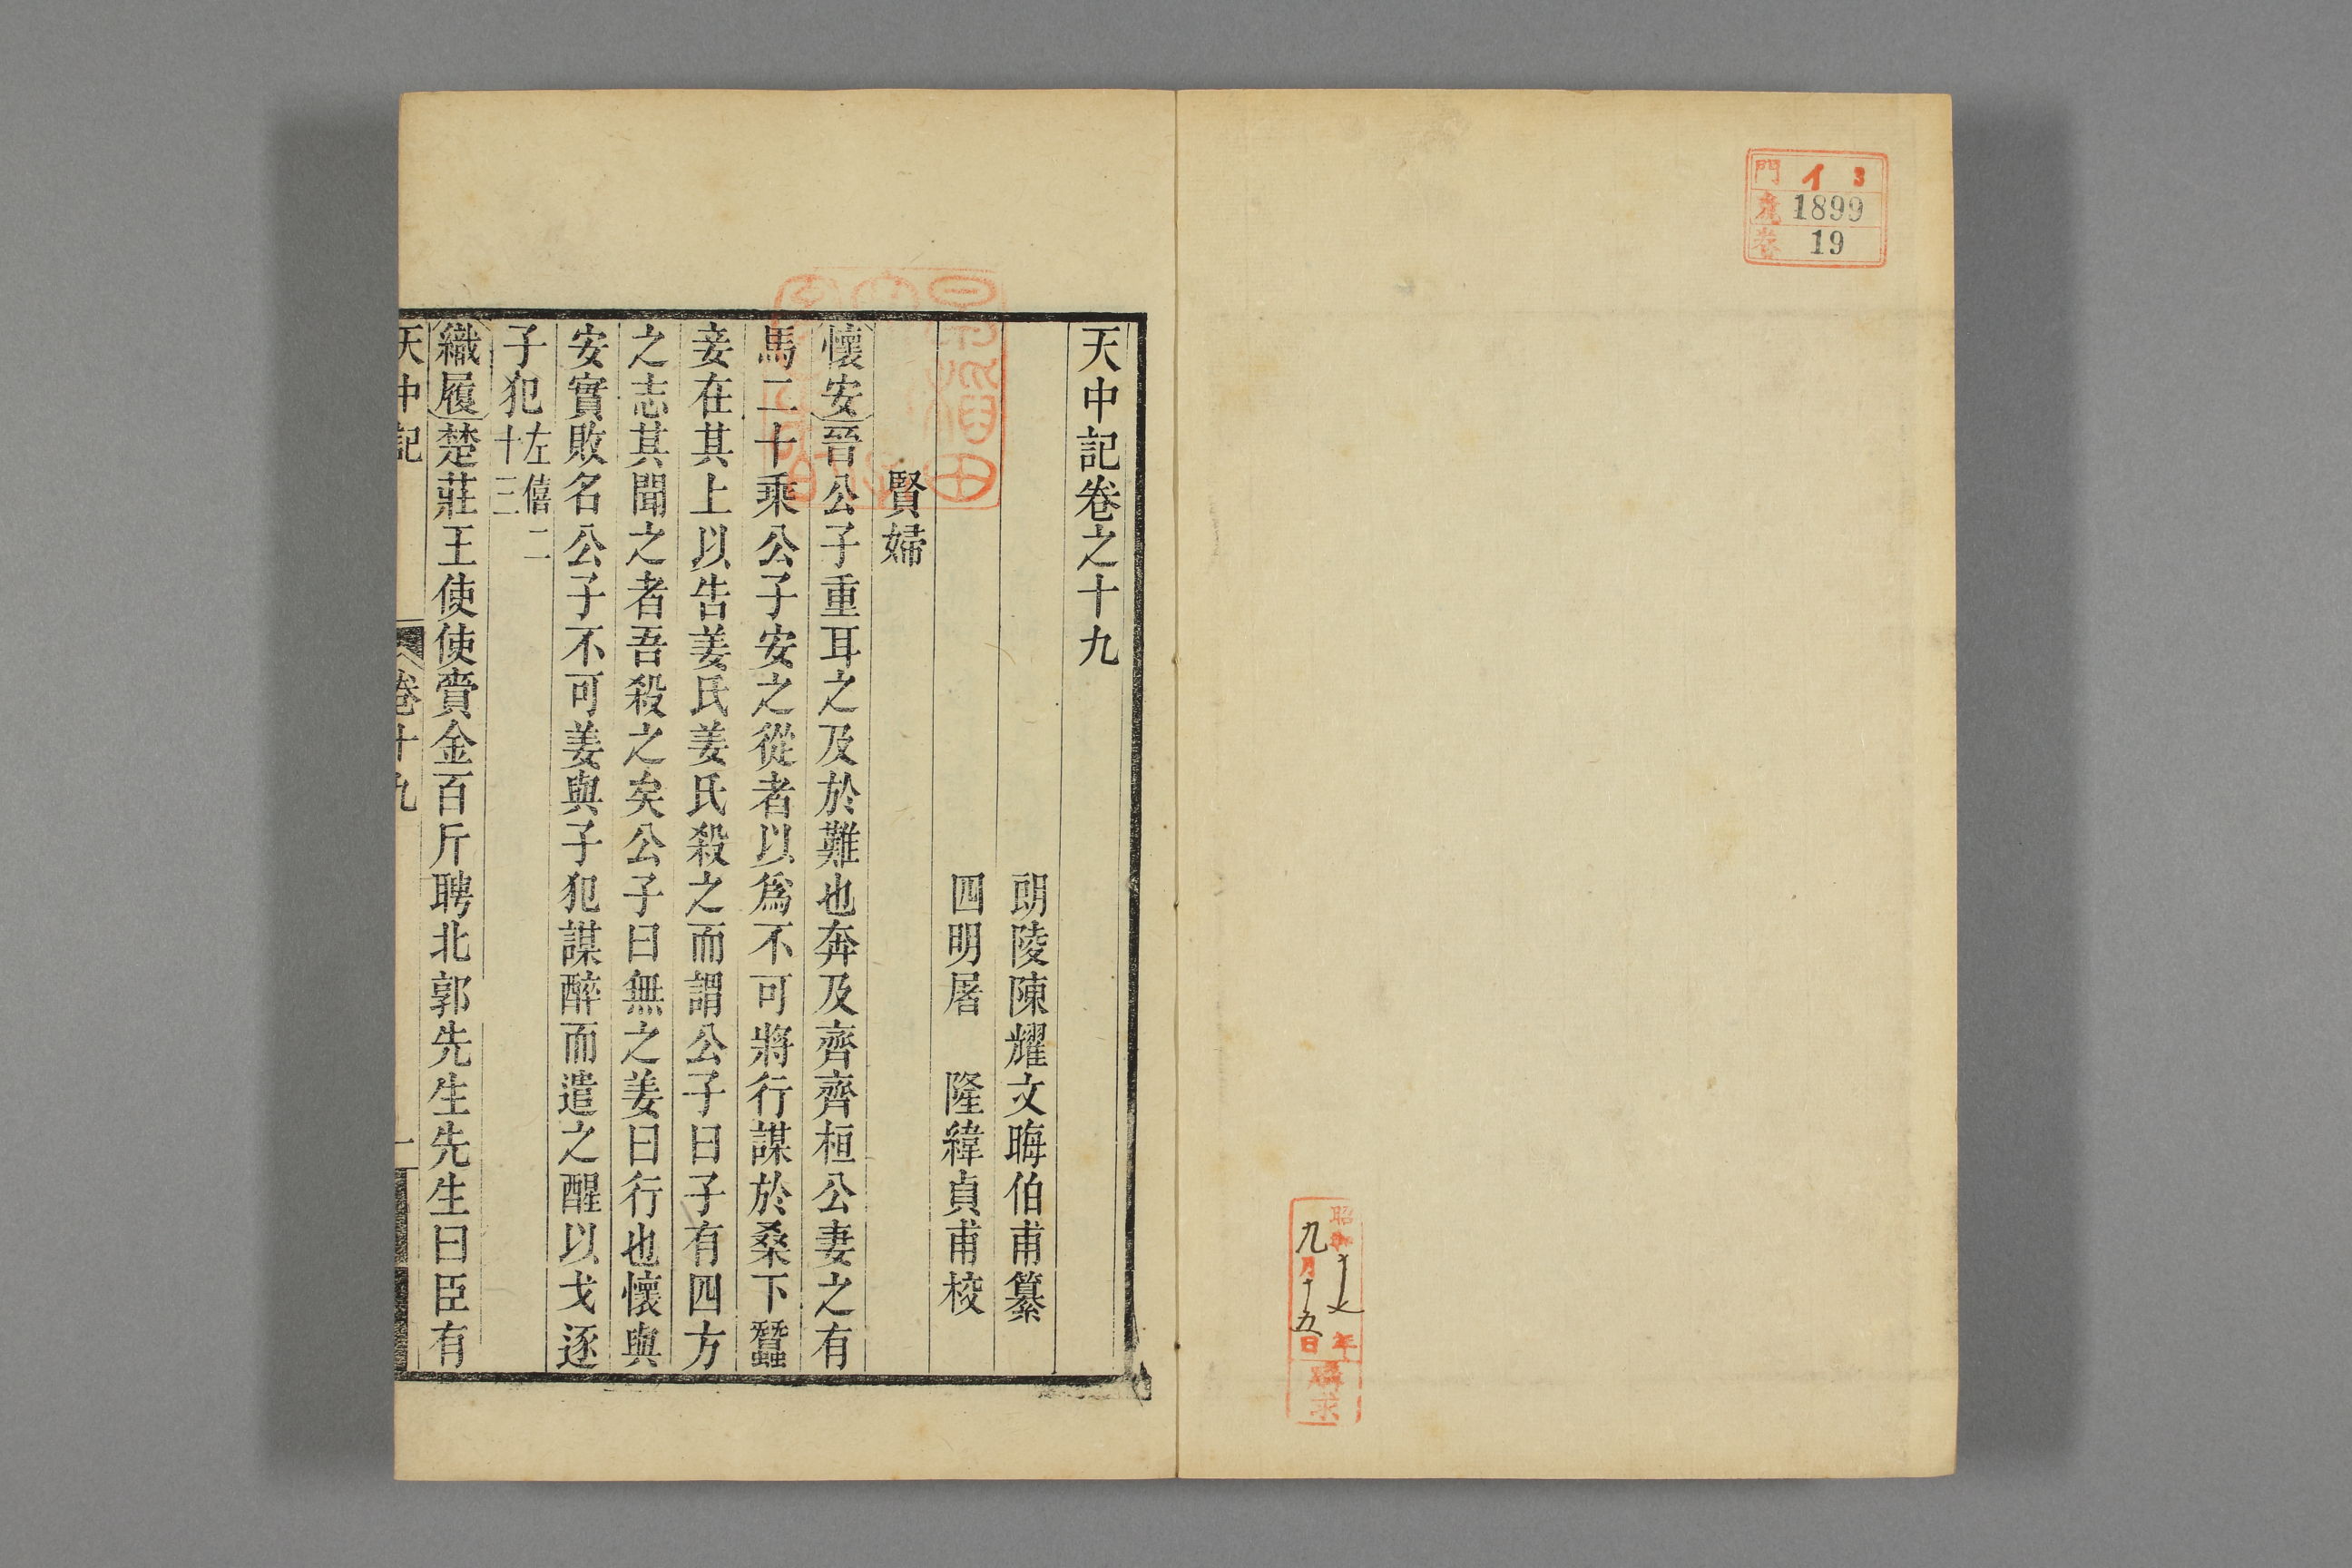 門 イ 3
號 1899
卷 19
昭和十七年
九月十五日
購求
天中記卷之十九
朗陵陳耀文晦伯甫纂
四明屠　隆緯貞甫校
賢婦
懷安晉公子重耳之及於難也奔及齊齊桓公妻之有
馬二十乘公子安之從者以爲不可將行謀於桑下蠶
妾在其上以告姜氏姜氏殺之而謂公子曰子有四方
之志其聞之者吾殺之矣公子曰無之姜曰行也懷與
安實敗名公子不可姜與子犯謀醉而遣之醒以戈逐
子犯左僖二十三
織履楚莊王使使賫金百斤聘北郭先生先生曰臣有
天中記 卷十九 一